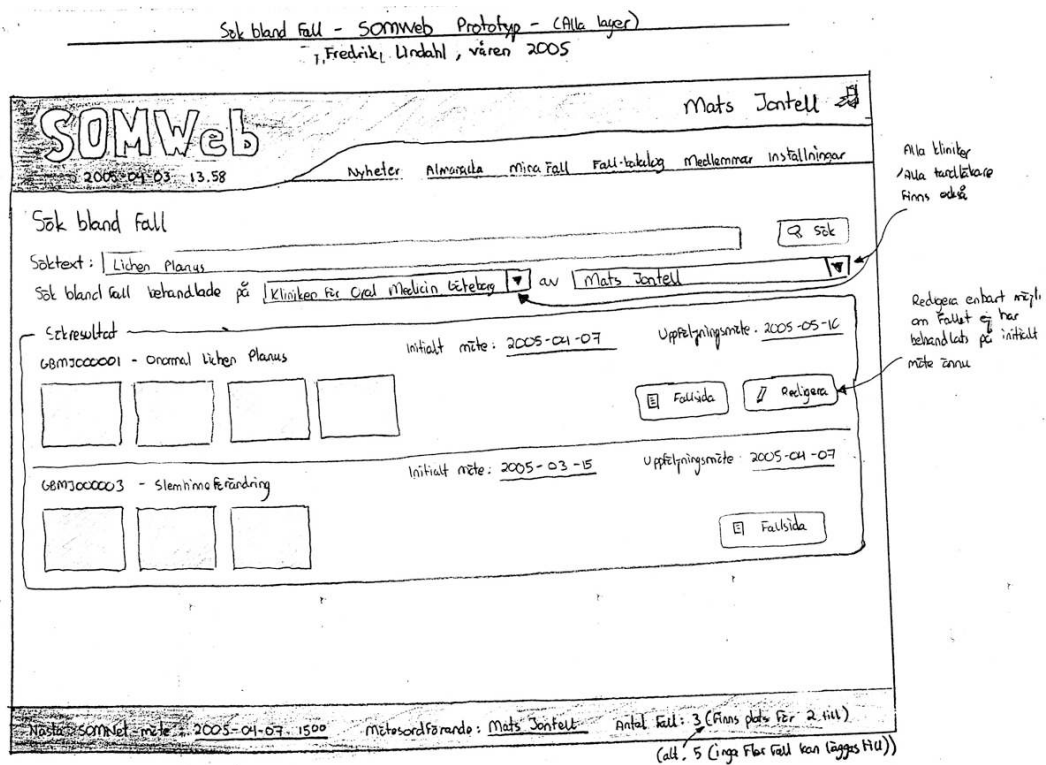 Sök bland Fall - SOMWeb Prototyp - (Alla lager)
Fredrik Lindahl, våren 2005
SOMWeb
2005-04-03 13.58
Mats Jontell
Nyheter Almanacka Mina Fall Fall-katalog Medlemmar Inställningar
Alla kliniker
/Alla tandläkare
Finns också
Sök bland Fall
Söktext: Lichen Planus
Sök
Sök bland Fall behandlade på Kliniken För Oral Medicin Göteborg av Mats Jontell
Sökresultat
GBMJ000001 - Onormal Lichen Planus
Initialt möte: 2005-04-07
Uppföljningsmöte: 2005-05-10
Fallsida
Redigera
Redigera enbart möjl.
om Fallet ej har
behandlats på initialt
möte ännu
GBMJ000003 - Slemhinneförändring
Initialt möte: 2005-03-15
Uppföljningsmöte: 2005-04-07
Fallsida
Nästa SOMNet-möte: 2005-04-07 1500
Mötesordförande: Mats Jontell
Antal Fall: 3 (Finns plats För 2 till)
(alt. 5 (inga Fler Fall kan läggas till))